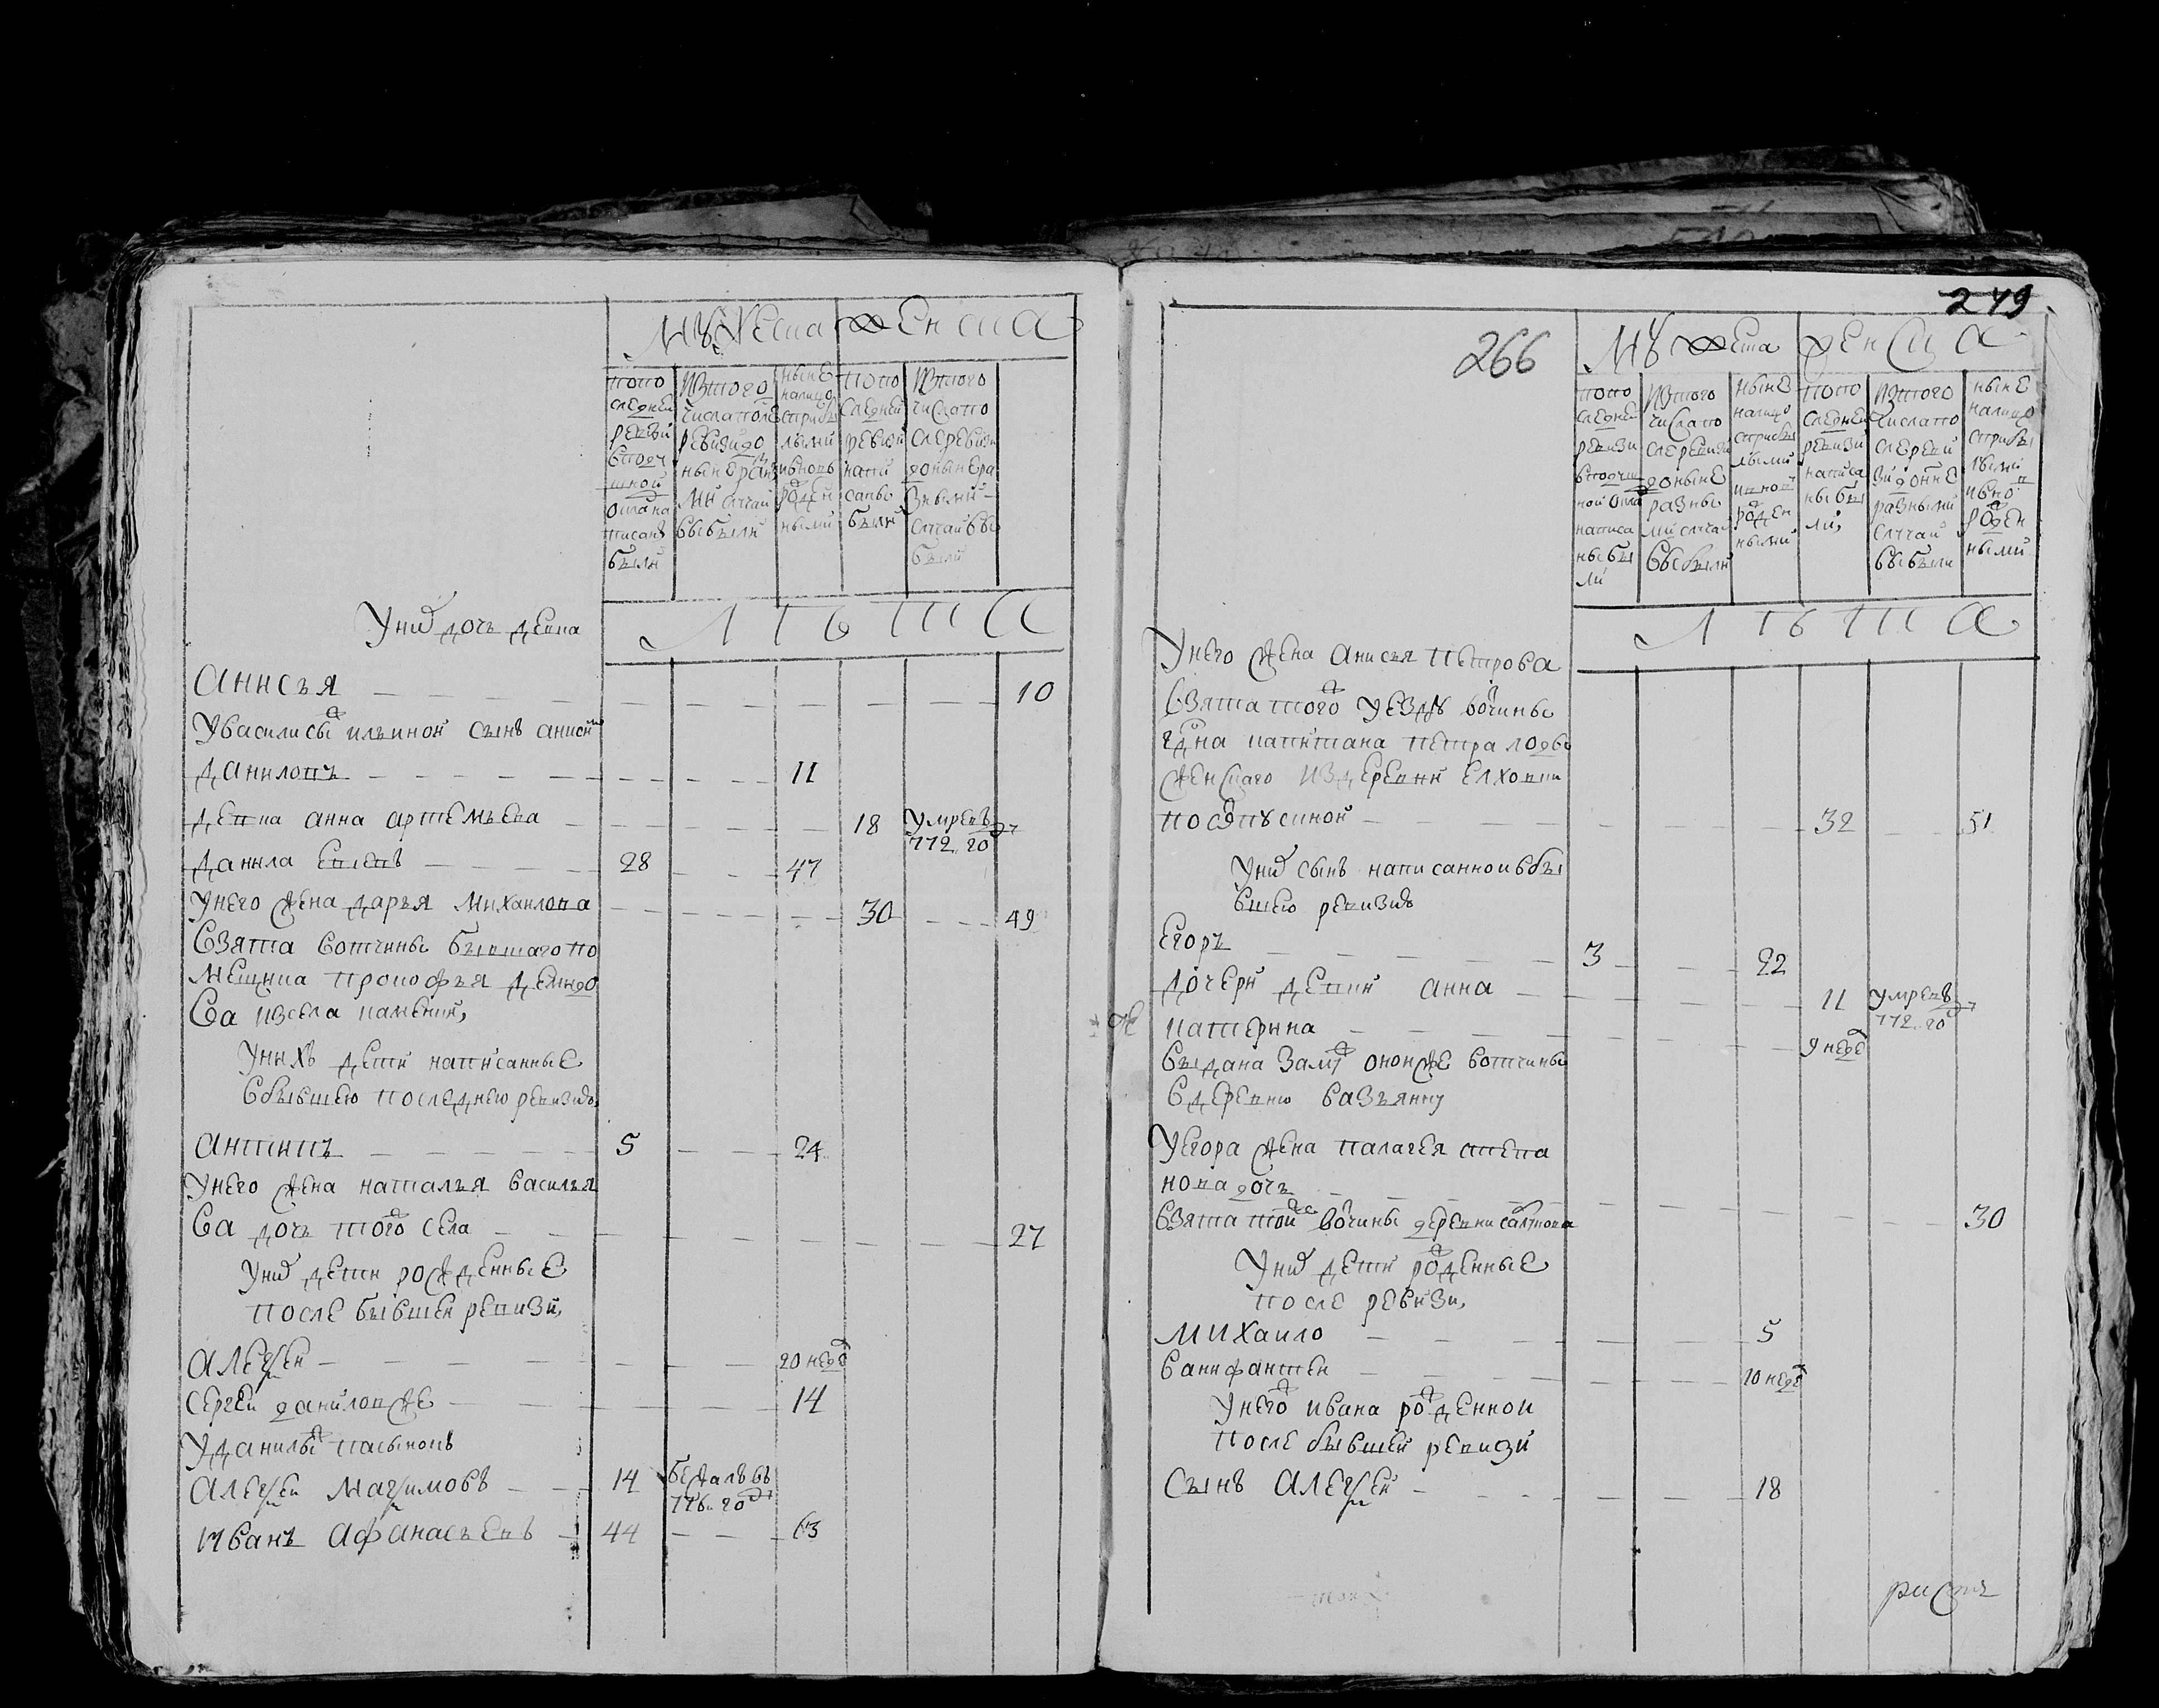 Мужеска женска
по по
следней
ревизии
в подуш
ной
оклад на
писаны
были
Из того
числа после
ревизи до
ныне раз
ми случаи
выбыли
ныне
налицо
с прибы
лыми
и вновь
рожден
ными
по по
следней
ревизи
напи
саны
были
Из того
числа по
сле ревизи
до ныне ра
зными
случаи вы
были
Лета
У них дочь девка
Анисья 10
У василисы ж ильиной сынъ анисим
Даниловъ 11
Девка анна артемьева 18 умре въ
772 году
Данила Евлевъ 28 47
У него жена дарья Михаилова 30 49
Взята вотчины бывшаго по
мещика прокофья демидо
ва из села камений,
У нихъ дети написанные
в бывшею последнею ревизию
Антипъ 5 24
У него жена наталья василья
ва дочь того ж села 27
У них дети рожденные
после бывшей ревизи,
Алексеи 20 недель
Сергеи данилов же 14
У данилы ж пасынокъ
Алексеи Максимовъ 14 бежалъ въ
776 году
Иванъ Афанасьевъ 44 63
249
266
Мужеска женска
по по
следней
ревизи
в подуш
ной окла
написа
ны бы
ли
Из того
числа по
сле ревизи
до ныне
разны
ми случа
выбыли
ныне
налицо
с прибы
лыми
и внов
рожден
ными
по по
следней
ревизи
написа
ны бы
ли,
Из того
числа по
сле реви
зи до нне
разными
случаи
выбыли
ныне
налицо
с прибы
лыми
и внов
рожден
ными
Лета
У него жена анисья петрова
взята того ж уезду вочины
гдна капитана петра
женскаго из деревни елховки
32 51
У них сынъ написаннои в бы
вшею ревизию
Егоръ 3 22
дочери девки анна 11 умре въ
772 году
катерина 9 недель
выдана замуж онои же вотчины
в деревню вазьянку
У егора жена палагея степа
нова дочь
взята той же вочины деревни салткова 30
У них дети рожденные
после ревизи,
Михаило 5
Ванифантеи 10 недель
У него ж ивана рожденнои
после бывшей ревизи
сынъ Алексеи 18